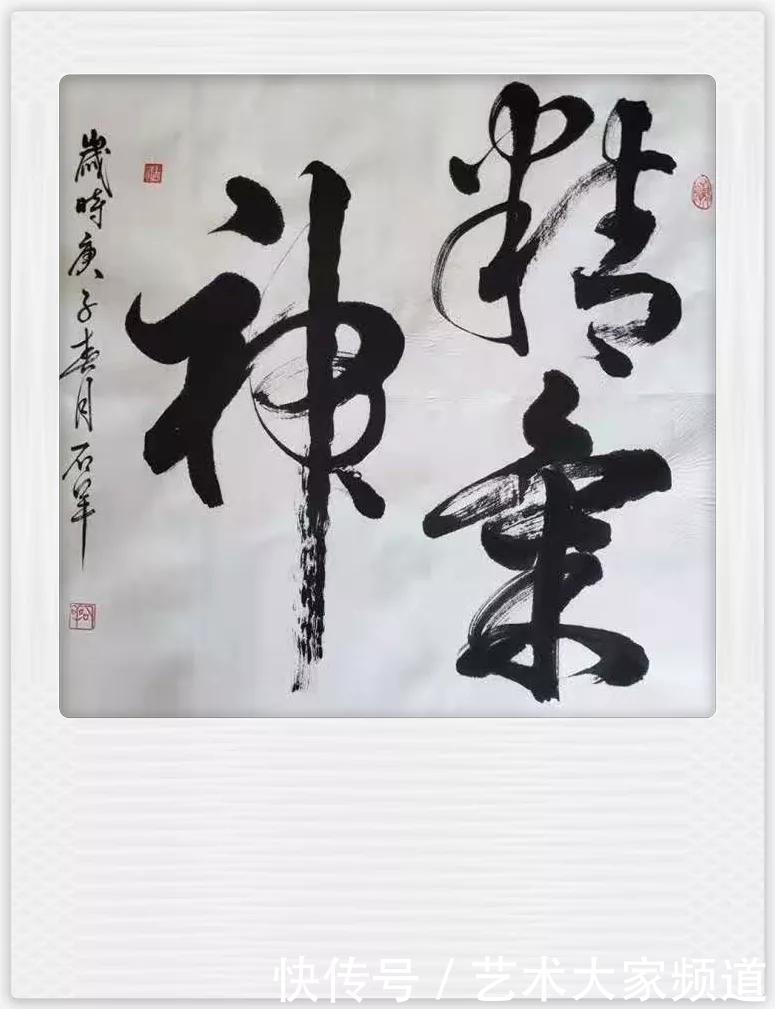 精氣
神
歲時庚子春月石羊
快传号 / 艺术大家频道